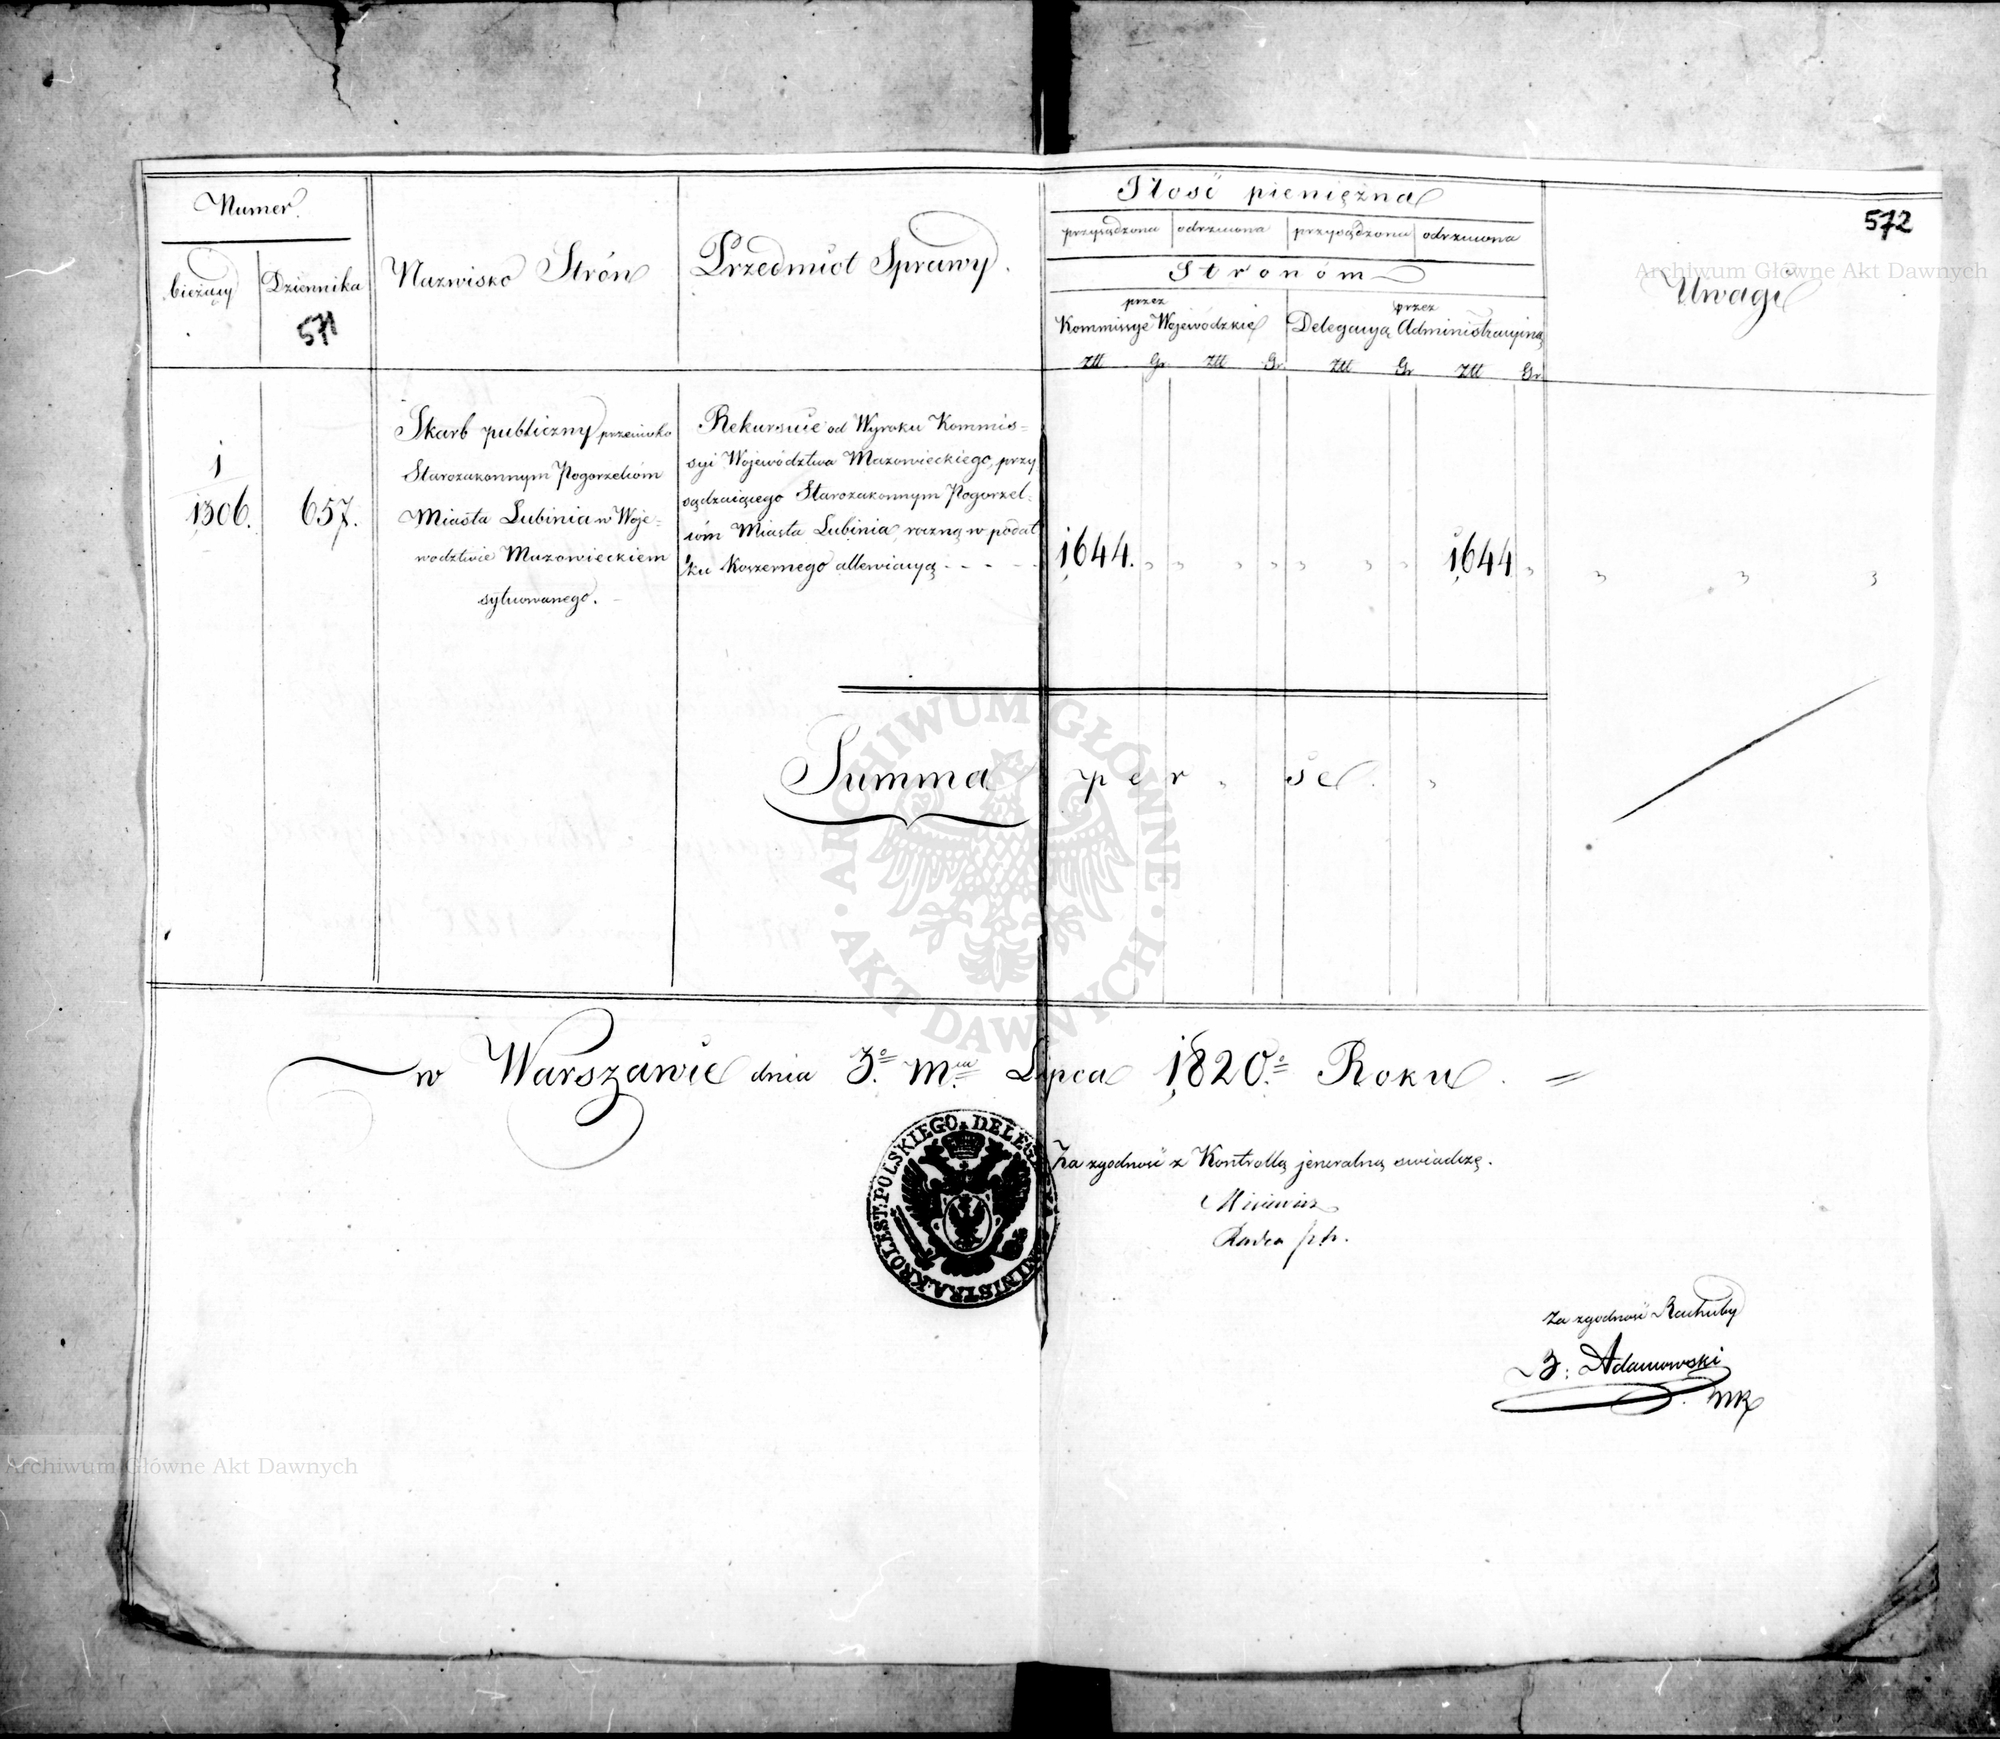 572
Archiwum Główne Akt Dawnych
Numer.
bieżący
Dziennika
571
Nazwisko Strón
Przedmiot Sprawy.
Ilość pieniężna
przysądzona odrzucona przysądzona odrzucona
Stronóm
przez
Kommissye Wojewódzkie
przez
Delegacyą Administracyiną
Złł Gr. Złł Gr. Złł Gr Złł Gr.
Uwagi
1
1306.
657.
Skarb publiczny przeciwko
Starozakonnym Pogorzelcóm
Miasta Lubinia w Woje-
wodztwie Mazowieckiem
sytuowanego.
Rekursuie od Wyroku Kommis-
syi Województwa Mazowieckiego, przy
sądzaiącego Starozakonnym Pogorzel-
cóm Miasta Lubinia roczną w podat
ku Koszernego allewiacyą - - - -
1644. " " " " " " " " 1644 " " " "
Summa per " se. "
w Warszawie dnia 3.o M.ca Lipca 1820.o Roku.
KROLEST: POLSKIEGO DELEGACYA ADMINISTRA:
Za zgodność z Kontrollą jeneralną swiadczę.
Radca
Za zgodność Rachuby
B: Adamowski
NR
ARCHIWUM GŁÓWNE · AKT DAWNYCH ·
Archiwum Główne Akt Dawnych